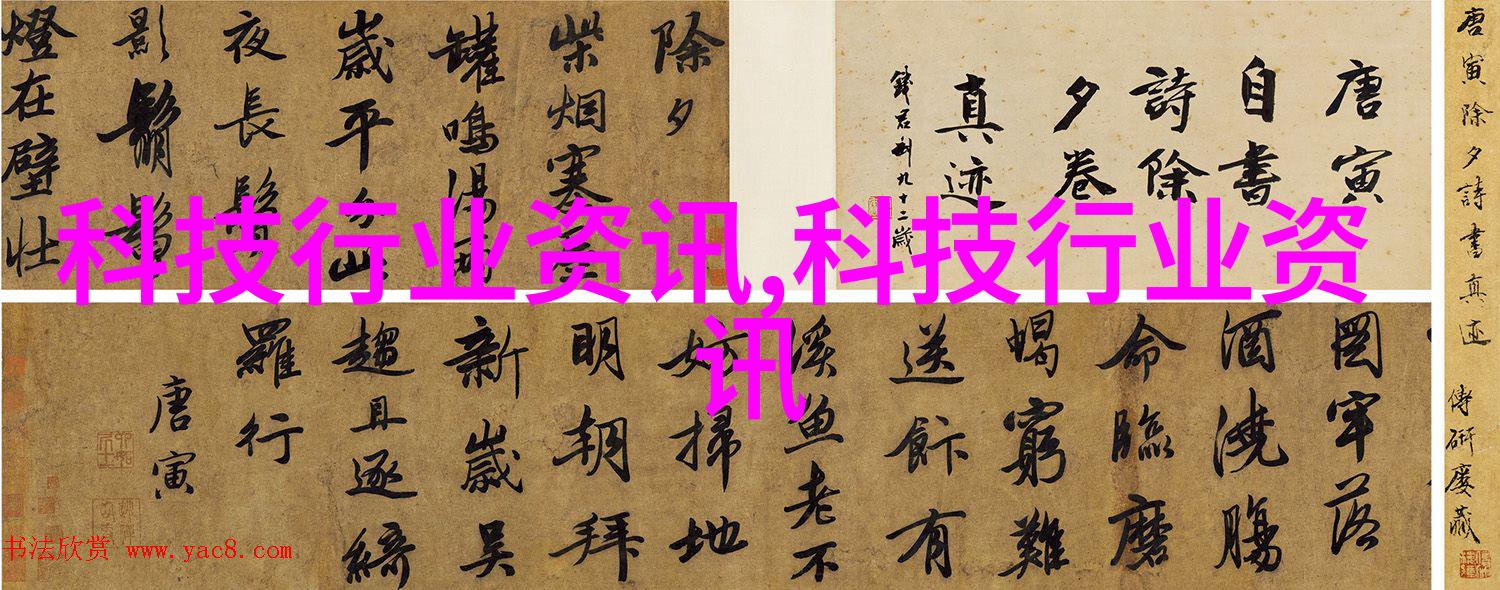 唐寅除夕詩書真迹 傅研廔藏
唐寅
自書
詩除
夕卷
真迹
錢君匋九十二歲
除夕
柴烟寒
罐鳴湯
歲平分
夜長
影鬅鬙
燈在壁壯
圖牢落
酒澆腸
命臨磨
蝎窮難
送飰有
溪魚老不
妨掃地
明朝拜
新歲吴
趨且逐綺
羅行
唐寅
科技行业资讯,科技行业资
讯
书法欣赏 www.yac8.com